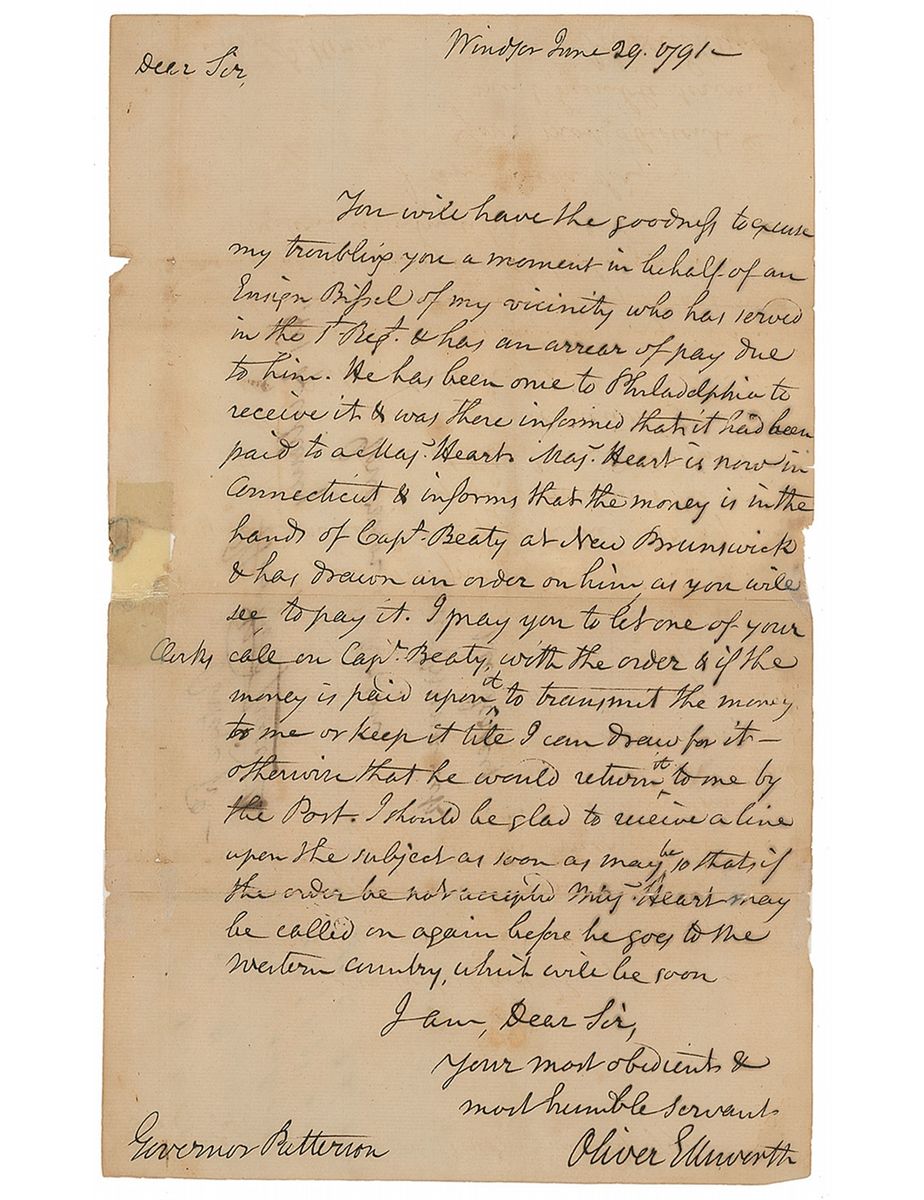 Windsor June 29. 1791—
Dear Sir,
You will have the goodness to excuse
my troubling you a moment in behalf of an
Ensign Bissel of my vicinity who has served
in the 1t Regt. & has an arrear of pay due
to him. He has been once to Philadelphia to
receive it & was there informed that it had been
paid to a Maj. Heart. Maj. Heart is now in
Connecticut & informs that the money is in the
hands of Capt. Beaty at New Brunswick
& has drawn an order on him, as you will
see to pay it. I pray you to let one of your
Clerks call on Capt. Beaty, with the order & if the
money is paid upon it, to transmit the money
to me or keep it till I can draw for it—
otherwise that he would return it to me by
the Post. I should be glad to receive a line
upon the subject as soon as may be so that if
the order be not accepted Maj. Heart may
be called on again before he goes to the
Western Country, which will be soon
I am, Dear Sir,
Your most obedient &
most humble servant
Governor Patterson Oliver Ellsworth